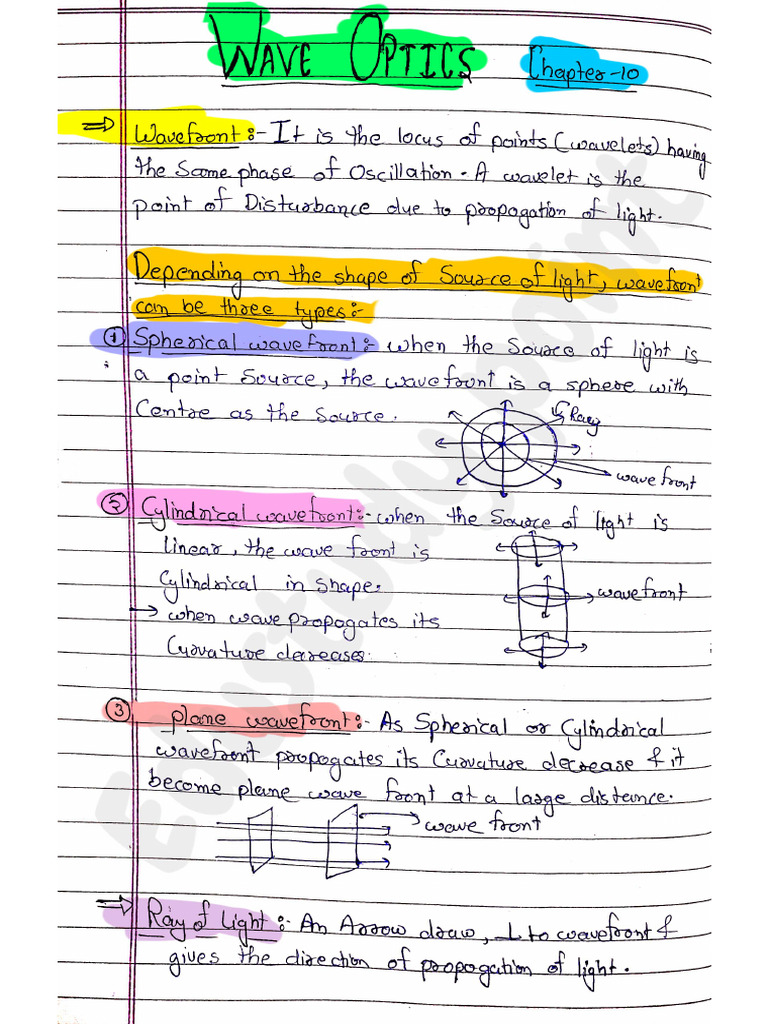 WAVE OPTICS Chapter-10
⇒ Wavefront:- It is the locus of points (wavelets) having
the same phase of Oscillation. A wavelet is the
point of Disturbance due to propogation of light.
Depending on the shape of Source of light, wavefront
can be three types:-
① Spherical wavefront:- when the Source of light is
a point Source, the wavefront is a sphere with
Centre as the Source.
Ray
wavefront
② Cylindrical wavefront:- when the Source of light is
linear, the wave front is
Cylindrical in shape.
wavefront
→ when wave propogates its
Curvature decreases.
③ plane wavefront:- As Spherical or Cylindrical
wavefront propogates its Curvature decrease & it
become plane wave front at a large distance.
wave front
⇒ Ray of Light:- An Arrow draw, ⊥ to wavefront &
gives the direction of propogation of light.
Edustudy point